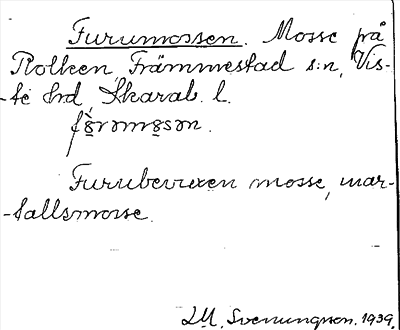 Furumossen. Mosse på
Rolken, Främmestad s:n, Vis-
-te hrd, Skarab. l.
fu̠rəmo̠sən.
Furubevuxen mosse, mar-
-tallsmosse.
LM. Svenungson. 1939.